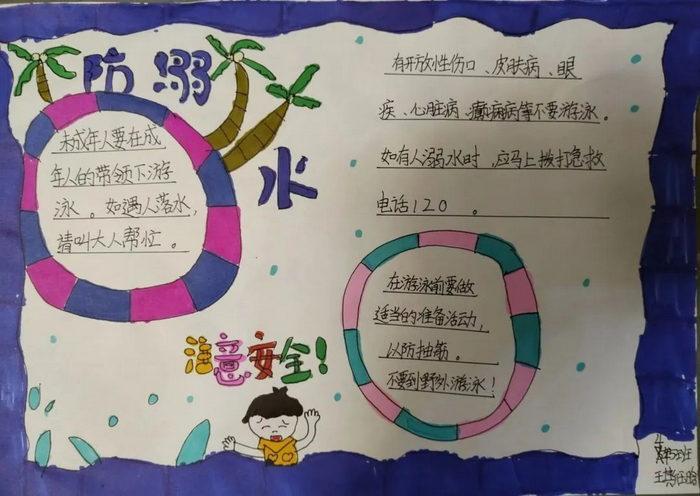 防溺水
未成年人要在成
年人的带领下游
泳。如遇人落水，
请叫大人帮忙。
有开放性伤口、皮肤病、眼
疾、心脏病、癫痫病等不要游泳。
如有人溺水时，应马上拨打急救
电话120。
在游泳前要做
适当的准备活动，
以防抽筋。
不要到野外游泳！
注意安全！